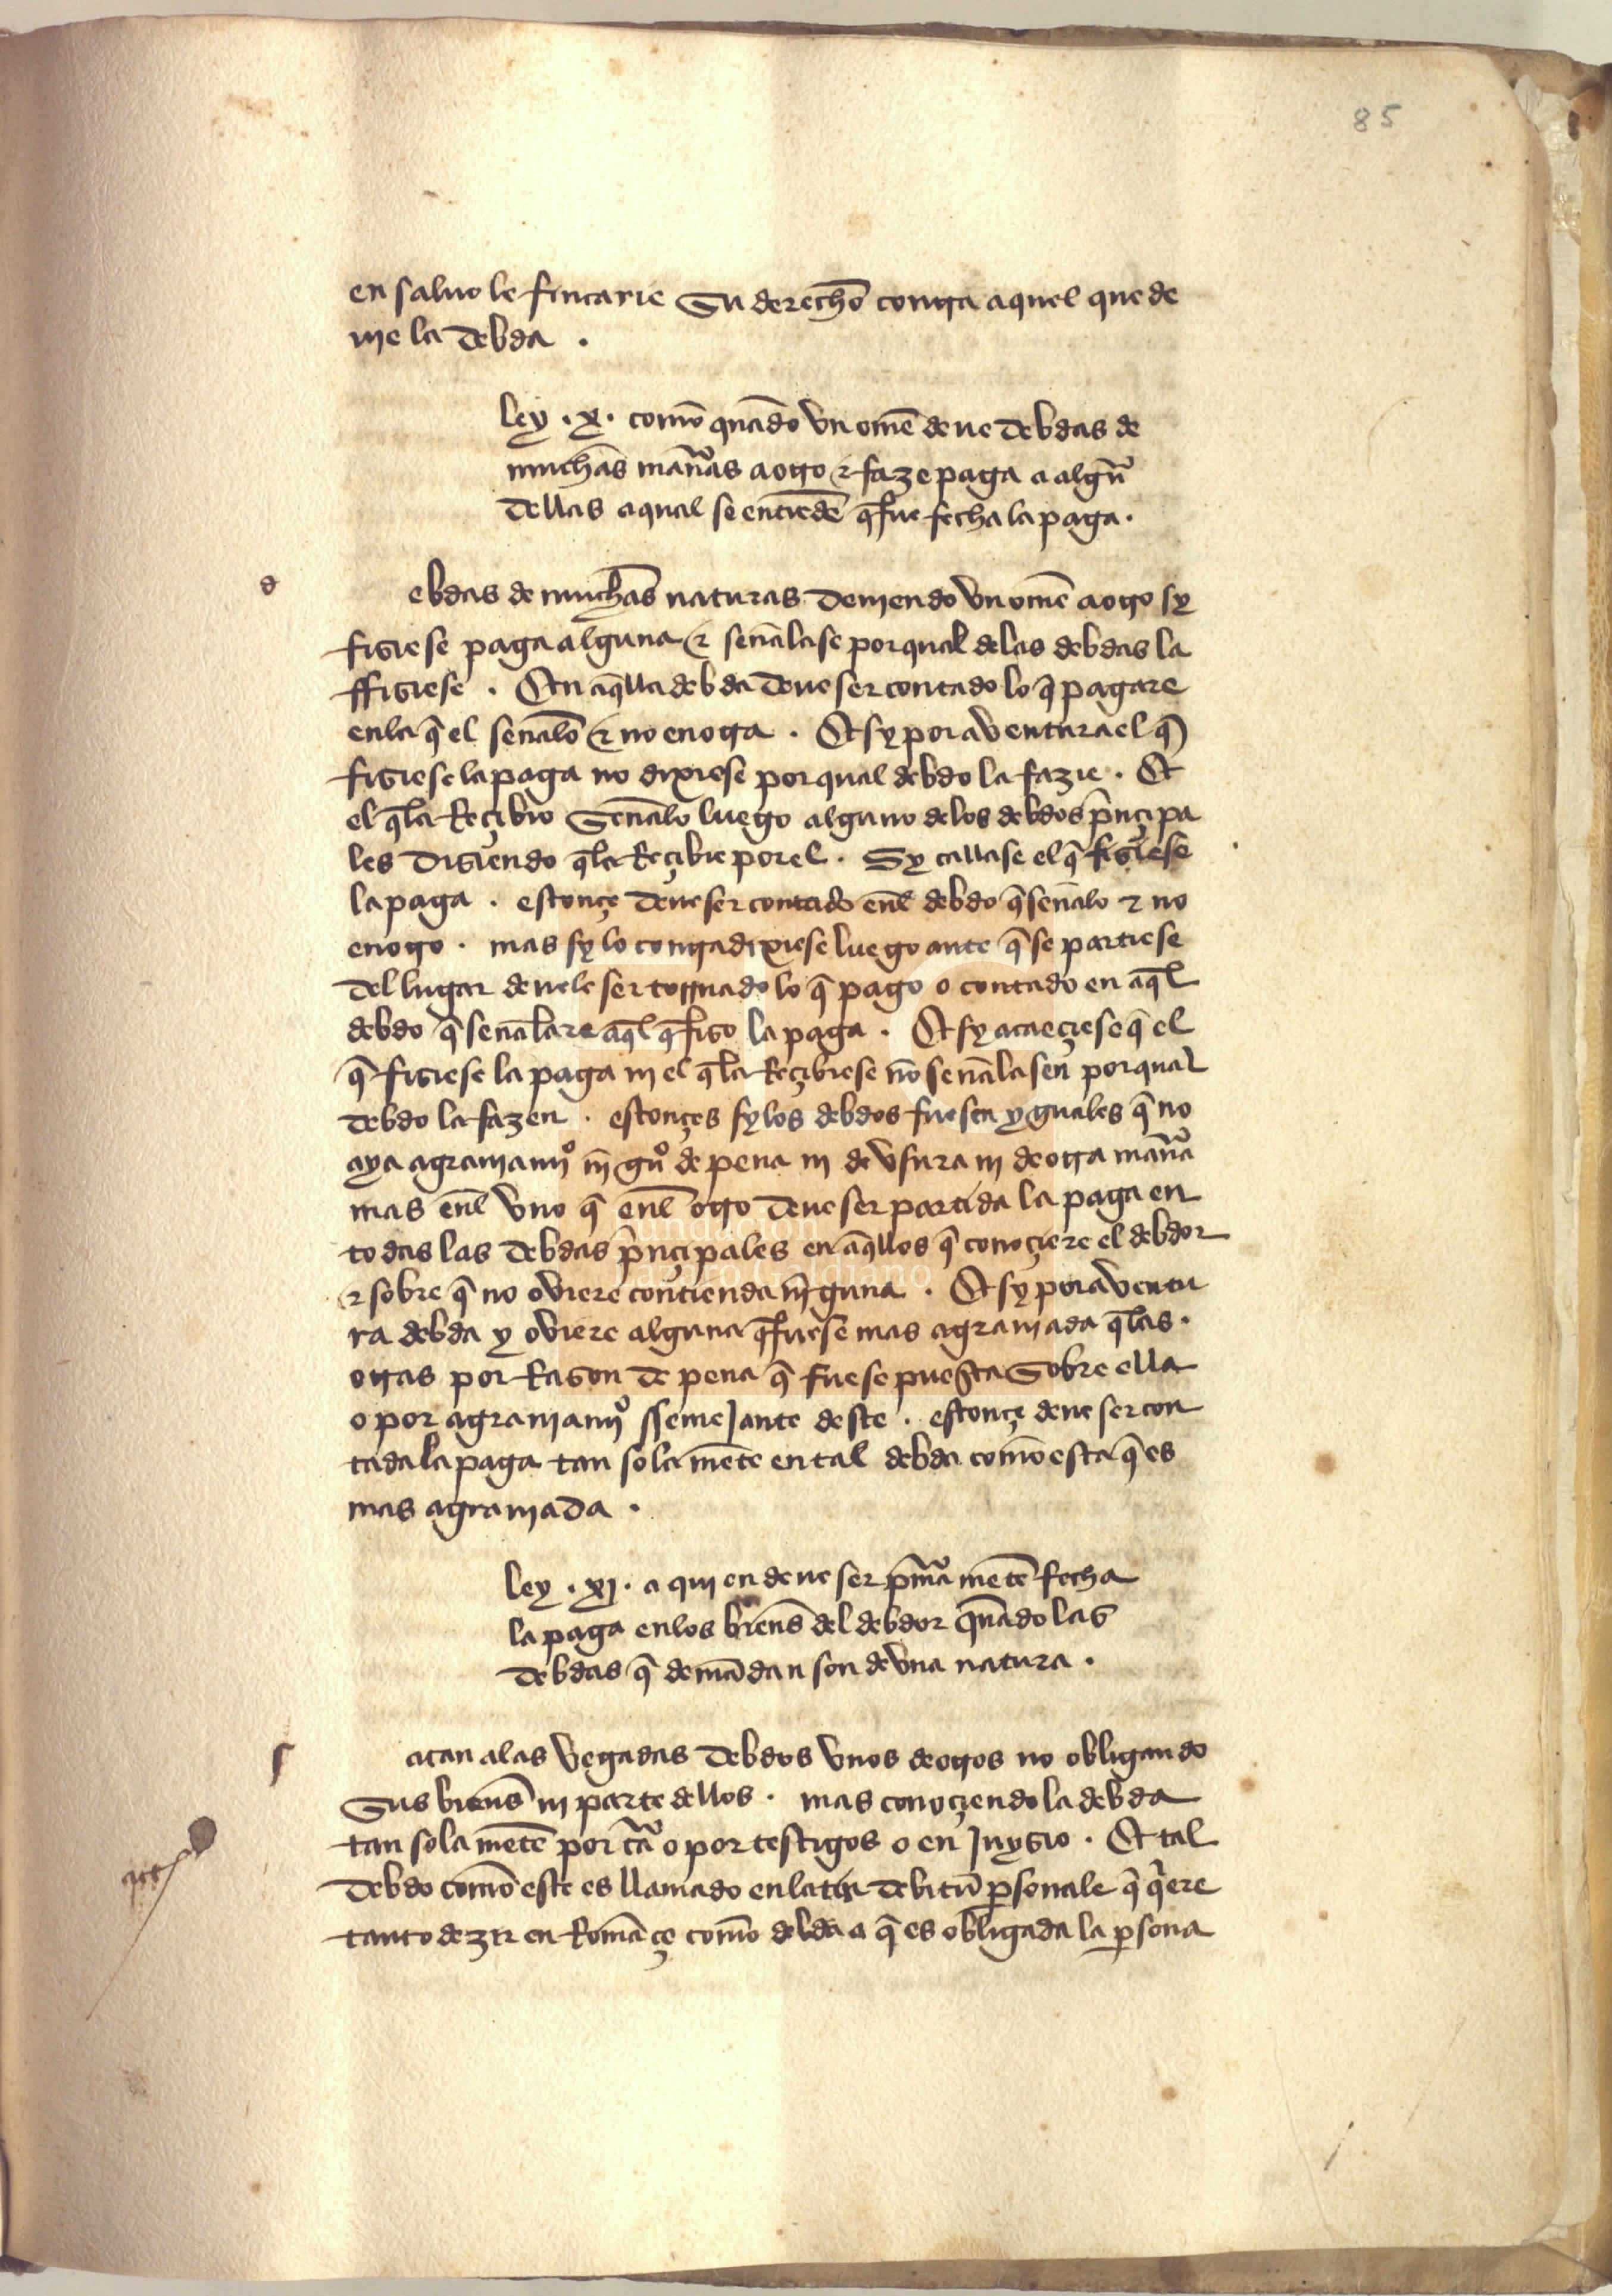 85
en saluo le fincarie Su derecho contra aquel que de
ue la debda .
ley .x. como quãdo vn ome deue debdas de
muchas mãnas a otro & faze paga a algũ
dellas a qual se entiẽde q̃ fue fecha la paga .
d
ebdas de muchas naturas deuiendo vn ome a otro sy
fisiese paga alguna & senalase por qual de las debdas la
ffisiese . En aq̃lla debda deue ser contado lo q̃ pagare
en la q̃ el senalo & no en otra . Et sy por aventura el q̃
fisiese la paga no dixiese por qual debdo la fazie . Et
el q̃ la Reçibio Senalo luego alguno de los debdos p̃nçipa
les disiendo q̃ la Reçibie por el . Sy callase el q̃ fisiese
la paga . estonçe deue ser contado enl debdo q̃ senalo & no
en otro . mas sy lo contradixiese luego ante q̃ se partiese
del lugar deuele ser tornado lo q̃ pago o contado en aq̃l
debdo q̃ senalare aq̃l q̃ fiso la paga . Et sy acaeçiese q̃ el
q̃ fisiese la paga ni el q̃ la Reçibiese no senalasen por qual
debdo la fazen . estonçes sy los debdos fuesen yguales q̃ no
aya agrauiamiº nĩ gũº de pena ni de vsura ni de otra mãna
mas enl vno q̃ enl otro deue ser partida la paga en
todas las debdas p̃nçipales en aq̃llos q̃ conoçiere el debdor
& sobre q̃ no oviere contienda nĩguna . Et sy por aventu
ra debda y oviere alguna q̃ fuese mas agrauiada q̃ las .
otras por Rason de pena q̃ fuese puesta Sobre ella
o por agrauiamiº ssemejante deste . estonçe deue ser con
tada la paga tan sola mẽte en tal debda como esta q̃ es
mas agrauiada .
ley .xj. a quien deue ser p̃ma mẽte fecha
la paga en los biens del debdor quãdo las
debdas q̃ demãdan son de vna natura .
f
acan a las vegadas debdos vnos de otros no obligando
Sus biens ni parte dellos . mas conoçiendo la debda
tan sola mẽte por cã o por testigos o en Juysio . Et tal
debdo como este es llamado en latin debitũ p̱sonale q̃ q̃ere
tanto dezir en Romãçe como debda a q̃ es obligada la p̱sona
Fundación
Lázaro Galdiano